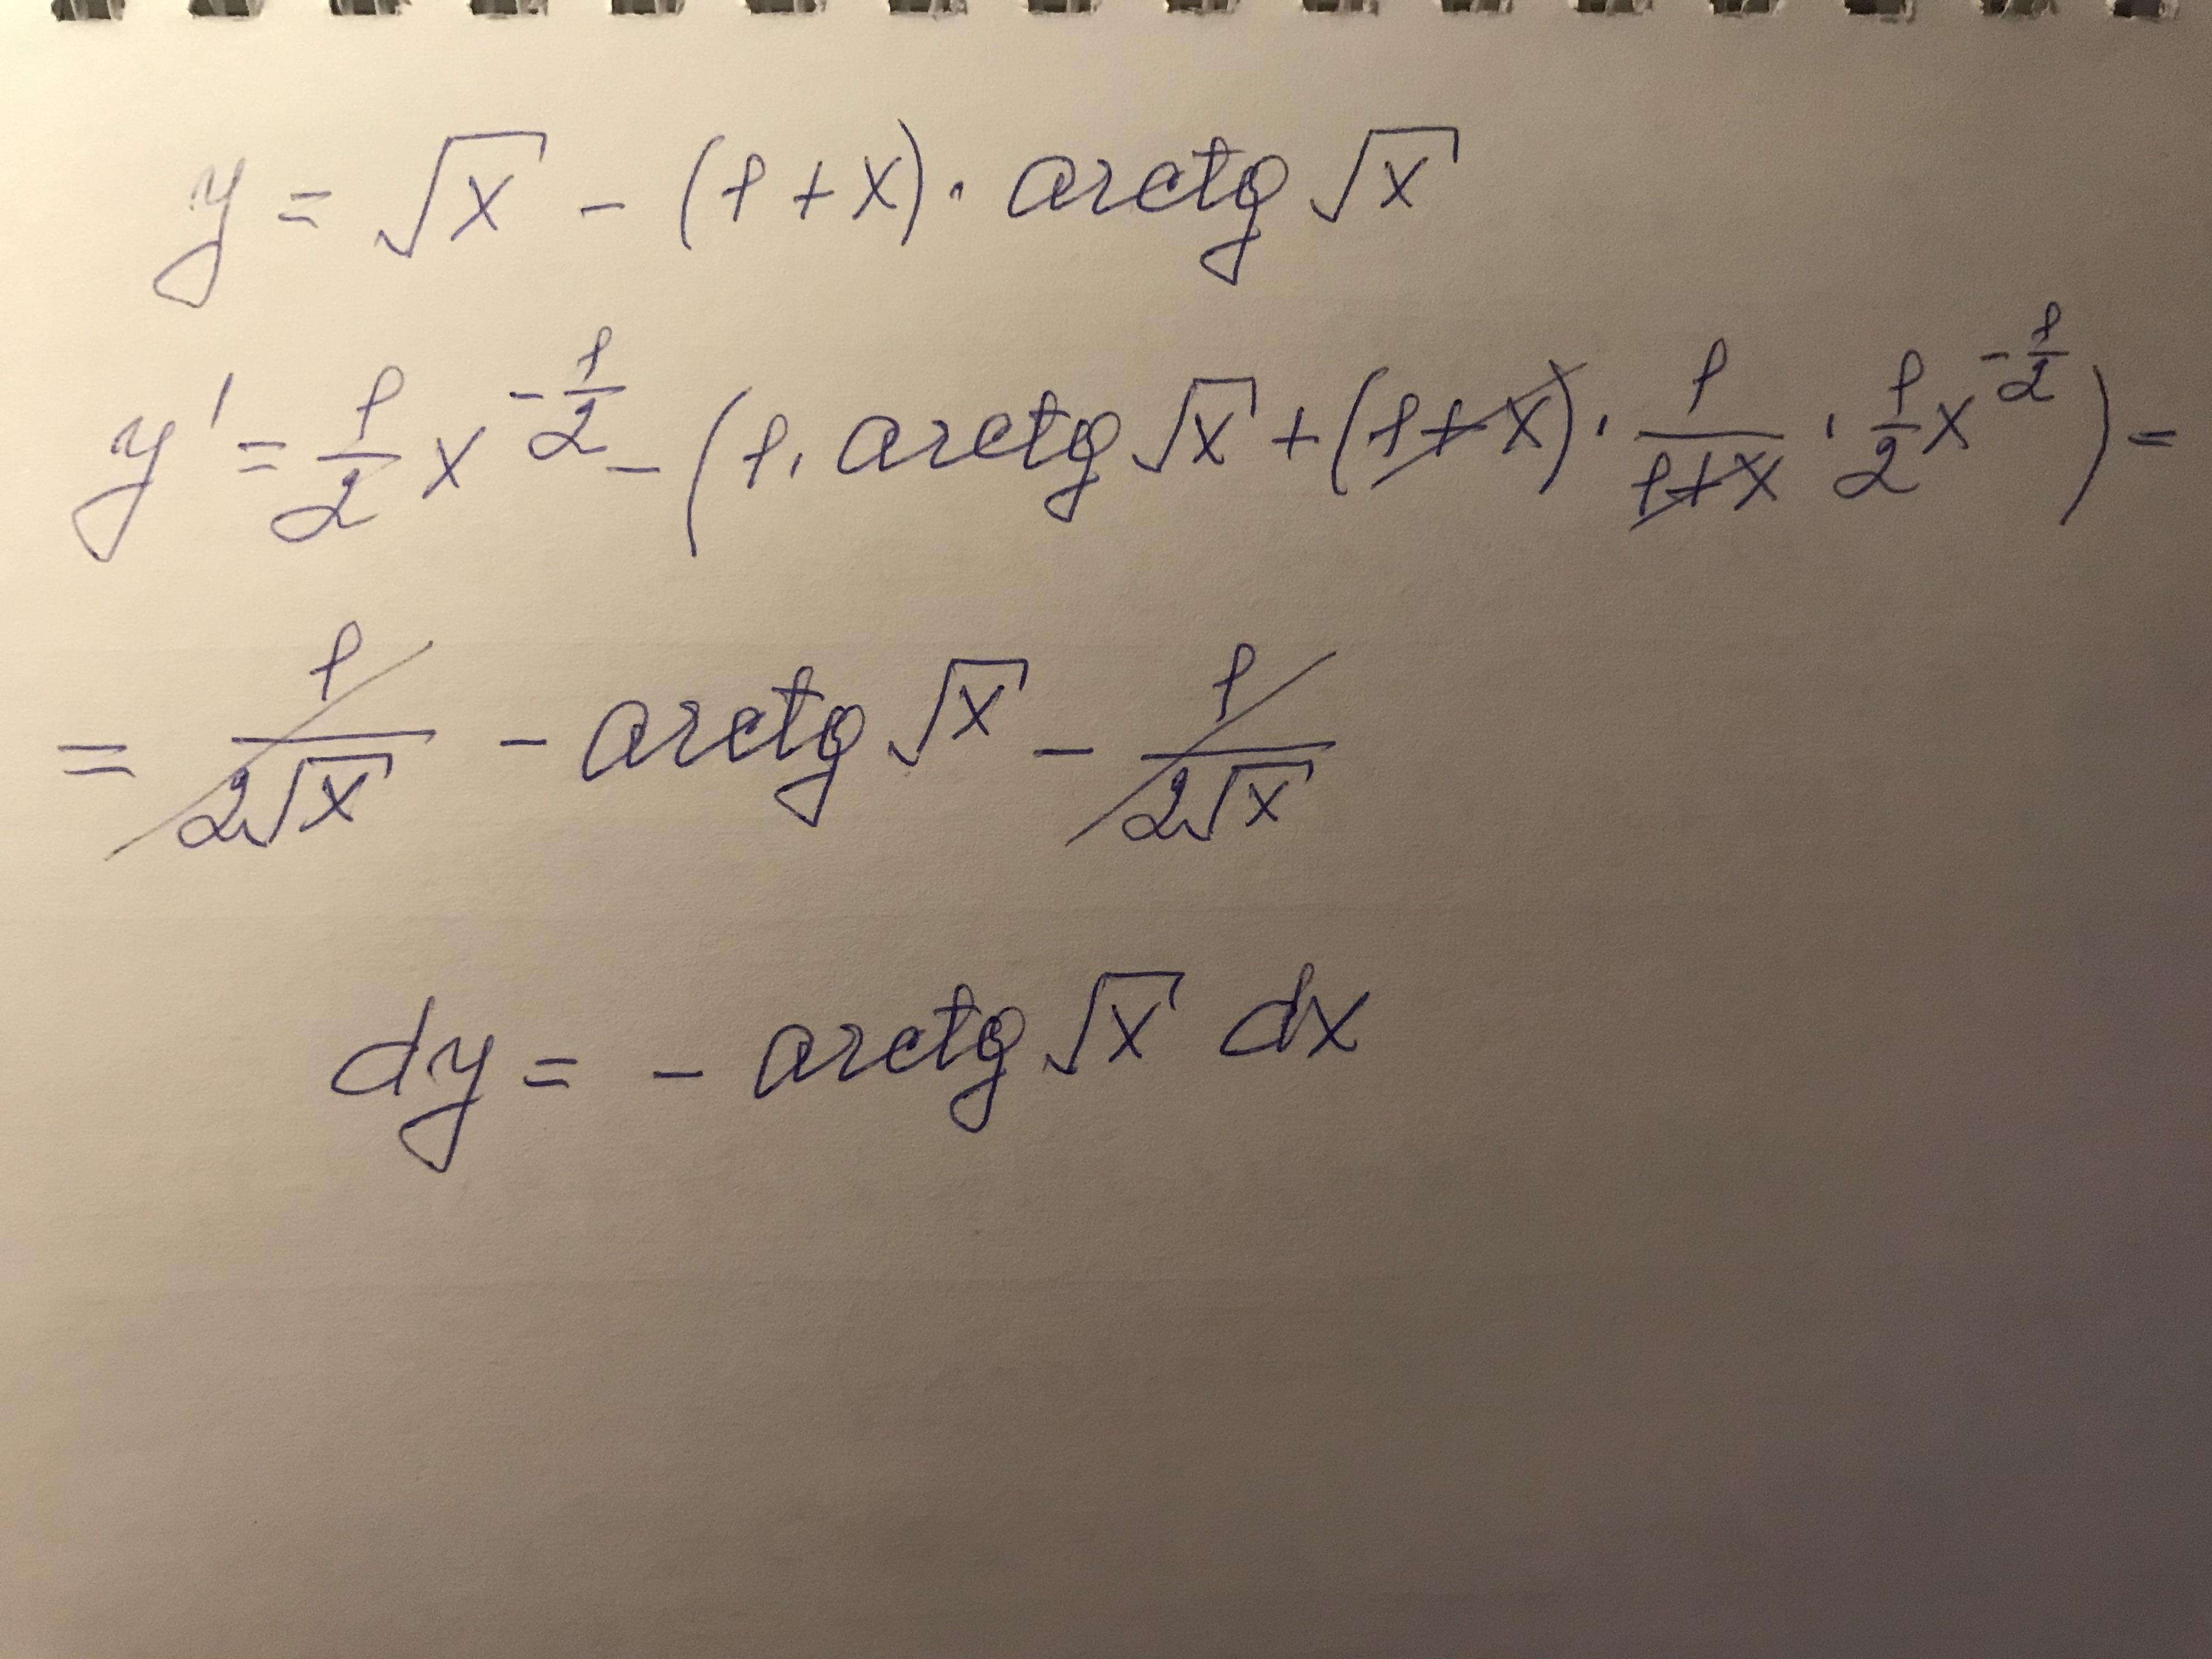 y = √x - (1 + x) · arctg √x
y' = 1/2 x^(-1/2) - (1 · arctg √x + (1 + x) · 1/(1+x) · 1/2 x^(-1/2)) =
= 1/(2√x) - arctg √x - 1/(2√x)
dy = - arctg √x dx